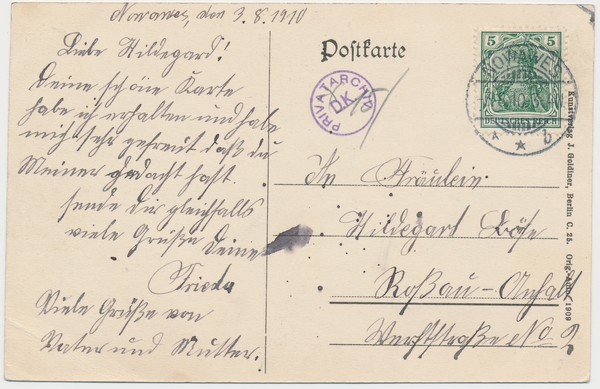 Nowawes, den 3.8.1910
Liebe Hildegard!
Deine schöne Karte
habe ich erhalten und habe
mich sehr gefreut daß du
Meiner gedacht hast.
sende dir gleichfalls
viele Grüße Deine
Frieda
Viele Grüße von
Vater und Mutter.
Postkarte
PRIVATARCHIV
D.K.
5 5
NOWAWES
DEUTSCHES REICH
* b
An Fräulein
Hildegart Böse
Roßau-Anhalt
Werftstraße No 2
Kunstverlag J. Goldiner, Berlin C. 25. Orig.-Aufn. 1909